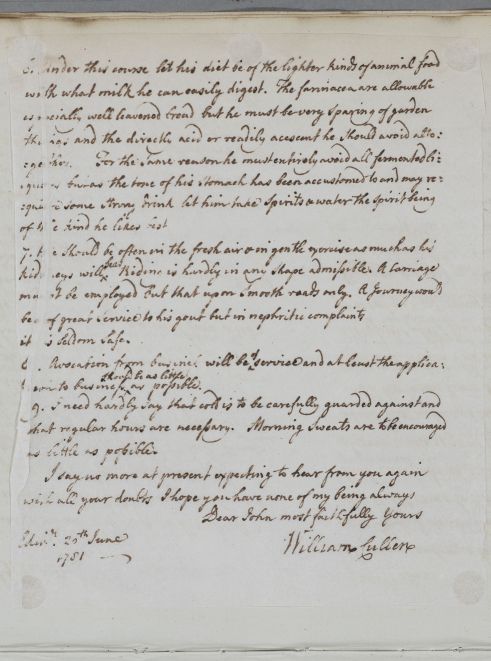 6. Under this course let his diet be of the lighter kinds of animal food
with what milk he can easily digest. The farinacea are allowable
especially well leavened bread but he must be very sparing of garden
things and the directly acid or readily acescent he should avoid alto:
:gether. For the same reason he must entirely avoid all fermented li:
:quors but as the tone of his Stomach has been accustomed to and may re:
:quire some strong drink let him take Spirits & water the Spirit being
of the kind he likes best
7. He should be often in the fresh air & in gentle exercise as much as his
kidneys will bear Riding is hardly in any shape admissible. A Carriage
must be employed but that upon smooth roads only. A Journey would
be of great service to his gout but in nephritic complaints
it is seldom safe.
8. Avocation from business will be of service and at least the applica:
:tion to business should be as little as possible.
9. I need hardly say that cold is to be carefully guarded against and
that regular hours are necessary. Morning Sweats are to be encouraged
as little as possible.
I say no more at present expecting to hear from you again
with all your doubts I hope you have none of my being always
Dear John most faithfully Yours
William Cullen
Edinr. June
1781